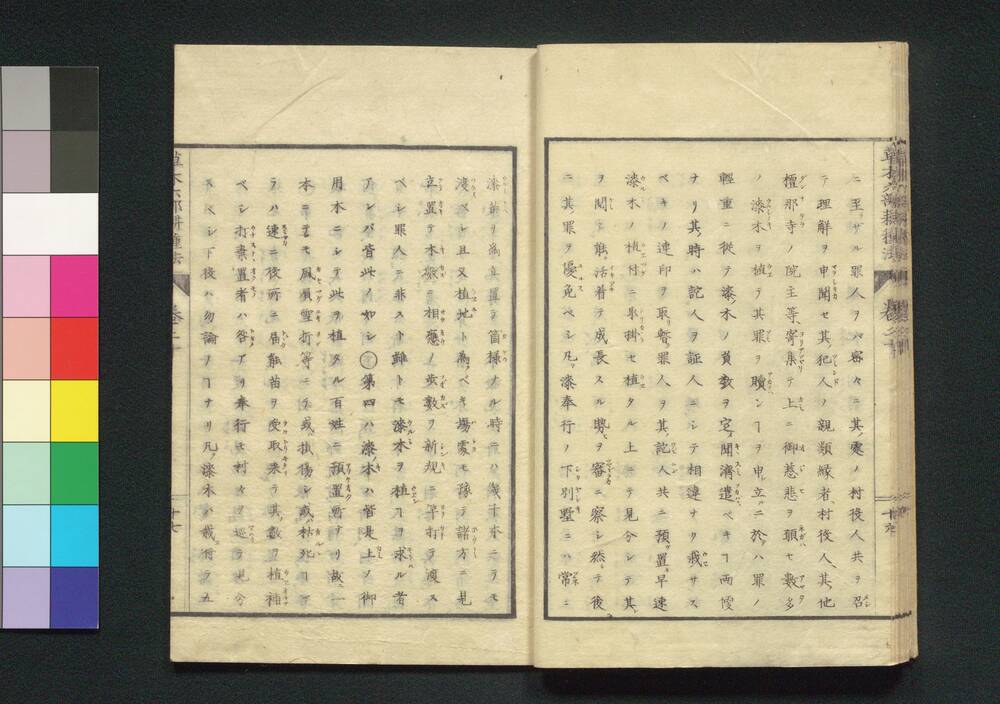 ニ至サル罪人ヲハ審々ニ其處ノ村役人共ヲ召
テ理解ヲ申聞セ其犯人ノ親類縁者村役人其他
檀那寺ノ院主等寄集テ上ニ御慈悲ヲ願セ數多
ノ漆木ヲ植テ其罪ヲ贖ンヿヲ申立ニ於ハ罪ノ
輕重ニ從テ漆木ノ員數ヲ定聞濟遣ベキヿ両度
ナリ其時ハ詫人ヲ証人ニシテ相違ナク栽サス
ベキノ連印ヲ取暫罪人ヲ其詫人共ニ預置早速
漆木ノ植付ニ掛セ植タル上ニテ見分シテ其
ヲ聞テ能活着テ成長スル勢ヲ審ニ察シ然テ後
ニ其罪ヲ優免ベシ凡漆奉行ノ下別墅ニハ常ニ
漆苗ヲ爲立置テ箇樣ノ時ニハ幾千本ニテモ
渡ベシ且又植地ト爲ベキ場處モ豫テ諸方ニ見
立置テ木數ニ相應ノ歩數ヲ新規ニ早打テ渡ス
ベシ罪人ニ非スト雖トモ漆木ヲ植ヿヲ求ル者
アレバ皆此ノ如シ○第四ハ漆木ハ皆是上ノ御
用木ニシテ此ヲ植タル百姓ニ預置所ナリ故ニ一
本ニテモ風損雪折等ニテ或掛傷シ或枯死ヿア
ラハ速ニ役所ニ届能苗ヲ受取来テ其數ヲ植補
ベシ打棄置者ハ咎アリ奉行モ村々ヲ巡テ見分
スベシ下役ハ勿論ノヿナリ凡漆木ハ栽付テ五